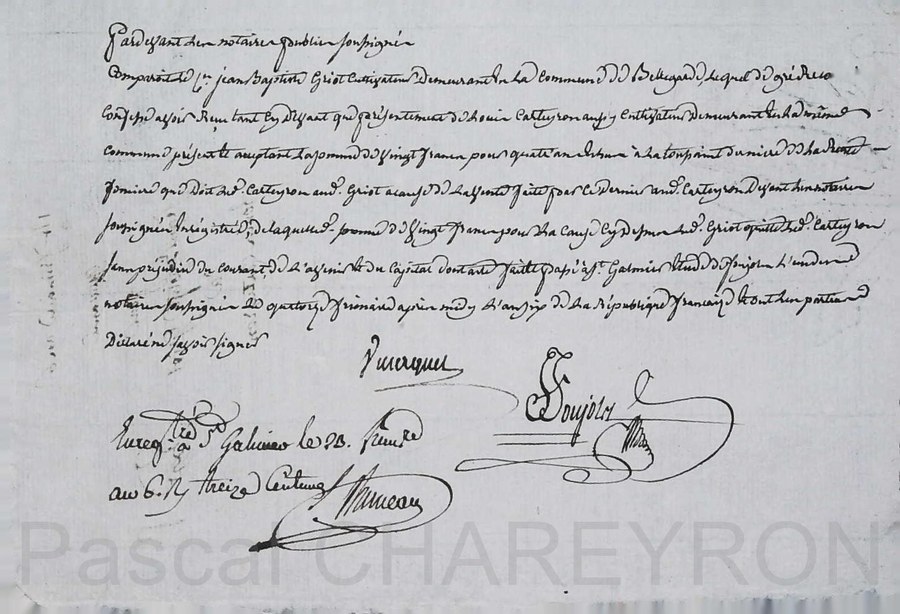 Pardevant les notaires publics soussignés
Comparoit le Cen jean Baptiste Griot Cultivateur Demeurant En La Commune de Bellegarde Lequel de gré
Confesse avoir Reçu tant Cy Devant que présentement de Louis Carteyron aussy Cultivateur Demeurant En La même
commune présent et acceptant La somme de Vingt francs pour quatre à La toussaint derniere de La Rente
fonciere que Doit led. Carteyron aud. Griot a cause de La Vente faite par Ce Dernier aud. Carteyron Devant Les notaires
soussignés Enregistrée, de Laquelle somme de Vingt francs pour La Cause Cy Dessus Led. Griot quitte led. Carteyron
sans préjudice du courant de L'avenir et du Capital dont acte fait et passé à St. Galmier Etude de Soujols L'un des
notaires soussignés le quatorze frimaire après midy L'an six de La République française Et ont Les parties
Déclaré ne savoir signer
Soujols
Enreg.tré à St Galmier le 23. frim.re
an 6. R. treize Centimes
Pascal CHAREYRON